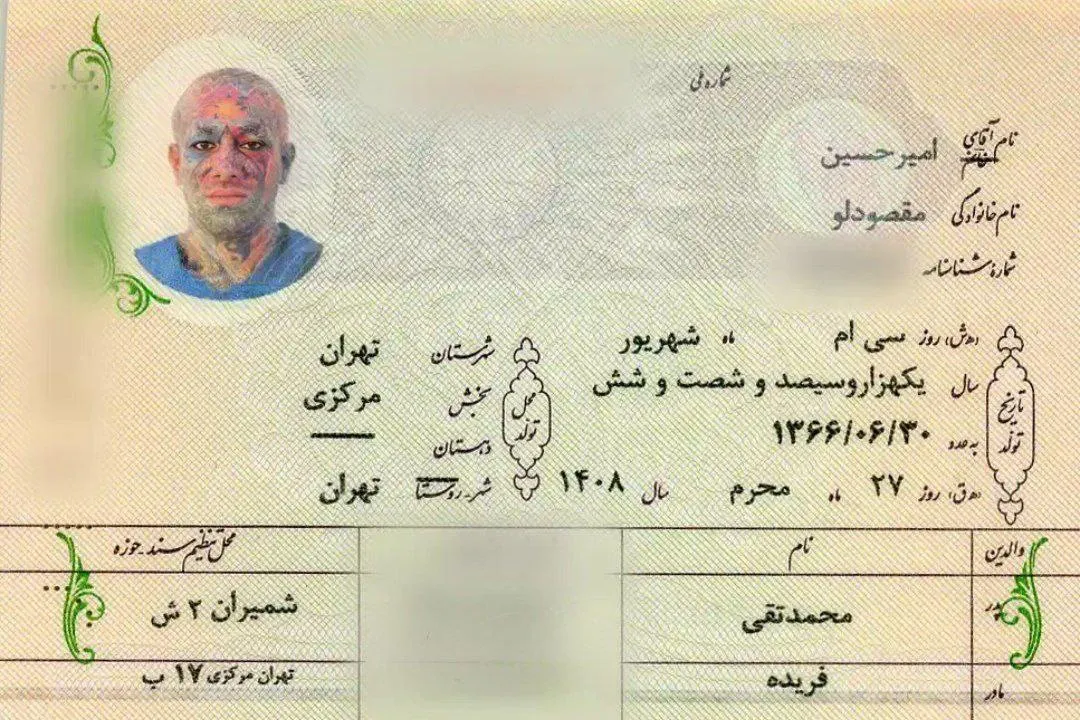 شماره ملی
نام آقای امیرحسین
نام خانوادگی مقصودلو
شمارهٔ شناسنامه
تاریخ تولد
(ه‍.ش) روز سی ام ماه شهریور
سال یکهزاروسیصد و شصت و شش
به عدد ۱۳۶۶/۰۶/۳۰
(ه‍.ق) روز ۲۷ ماه محرم سال ۱۴۰۸
محل تولد
شهرستان تهران
بخش مرکزی
دهستان
شهر-روستا تهران
والدین نام محل تنظیم سند-حوزه
پدر محمدتقی شمیران ۲ ش
مادر فریده تهران مرکزی ۱۷ ب